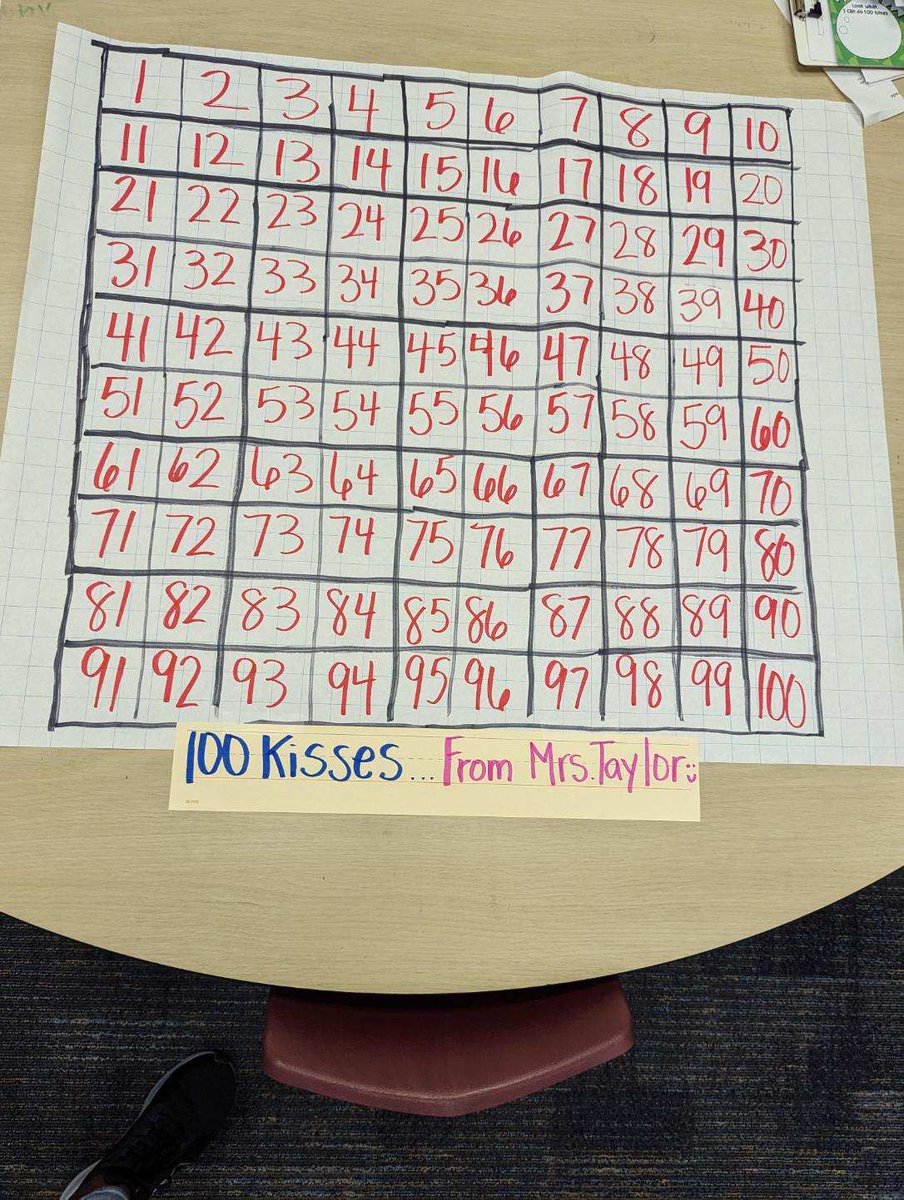 Look what
I can do 100 times
1 2 3 4 5 6 7 8 9 10
11 12 13 14 15 16 17 18 19 20
21 22 23 24 25 26 27 28 29 30
31 32 33 34 35 36 37 38 39 40
41 42 43 44 45 46 47 48 49 50
51 52 53 54 55 56 57 58 59 60
61 62 63 64 65 66 67 68 69 70
71 72 73 74 75 76 77 78 79 80
81 82 83 84 85 86 87 88 89 90
91 92 93 94 95 96 97 98 99 100
100 Kisses... From Mrs. Taylor